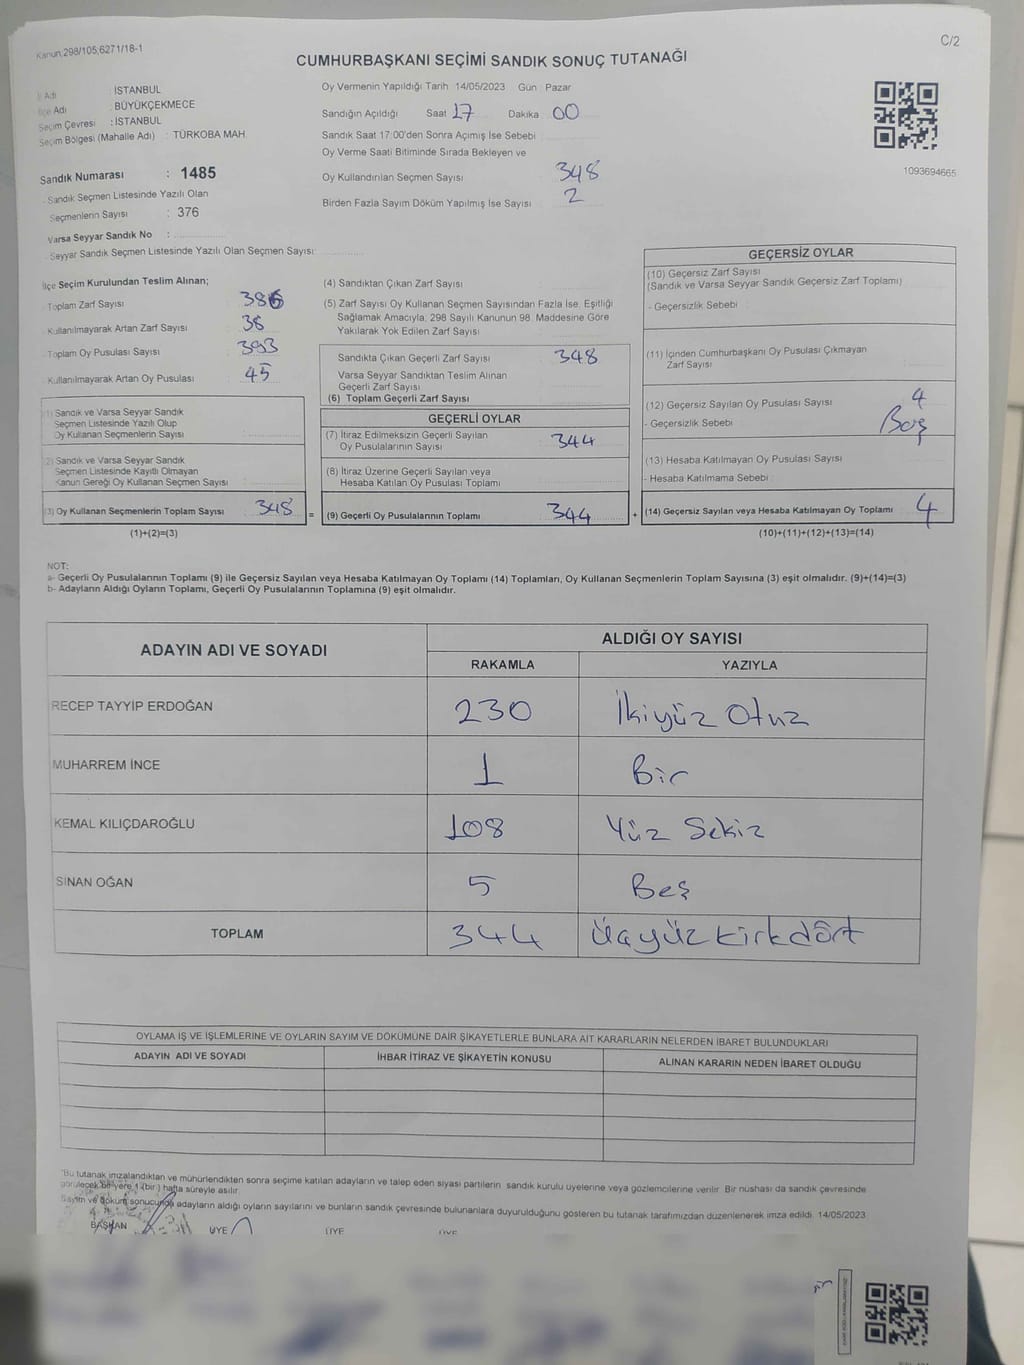 Kanun:298/105;6271/18-1
C/2
CUMHURBAŞKANI SEÇİMİ SANDIK SONUÇ TUTANAĞI
İl Adı : İSTANBUL
İlçe Adı : BÜYÜKÇEKMECE
Seçim Çevresi : İSTANBUL
Seçim Bölgesi (Mahalle Adı) : TÜRKOBA MAH.
Sandık Numarası : 1485
- Sandık Seçmen Listesinde Yazılı Olan
Seçmenlerin Sayısı : 376
Varsa Seyyar Sandık No :
- Seyyar Sandık Seçmen Listesinde Yazılı Olan Seçmen Sayısı:
Oy Vermenin Yapıldığı Tarih 14/05/2023 Gün : Pazar
Sandığın Açıldığı Saat 17 Dakika 00
Sandık Saat 17:00'den Sonra Açımış İse Sebebi
Oy Verme Saati Bitiminde Sırada Bekleyen ve
Oy Kullandırılan Seçmen Sayısı 348
Birden Fazla Sayım Döküm Yapılmış İse Sayısı 2
1093694665
İlçe Seçim Kurulundan Teslim Alınan;
- Toplam Zarf Sayısı 386
- Kullanılmayarak Artan Zarf Sayısı 38
- Toplam Oy Pusulası Sayısı 393
- Kullanılmayarak Artan Oy Pusulası 45
(1) Sandık ve Varsa Seyyar Sandık
Seçmen Listesinde Yazılı Olup
Oy Kullanan Seçmenlerin Sayısı
(2) Sandık ve Varsa Seyyar Sandık
Seçmen Listesinde Kayıtlı Olmayan
Kanun Gereği Oy Kullanan Seçmen Sayısı
(3) Oy Kullanan Seçmenlerin Toplam Sayısı 348
(1)+(2)=(3)
(4) Sandıktan Çıkan Zarf Sayısı
(5) Zarf Sayısı Oy Kullanan Seçmen Sayısından Fazla İse, Eşitliği
Sağlamak Amacıyla, 298 Sayılı Kanunun 98. Maddesine Göre
Yakılarak Yok Edilen Zarf Sayısı
Sandıkta Çıkan Geçerli Zarf Sayısı 348
Varsa Seyyar Sandıktan Teslim Alınan
Geçerli Zarf Sayısı
(6) Toplam Geçerli Zarf Sayısı
GEÇERLİ OYLAR
(7) İtiraz Edilmeksizin Geçerli Sayılan
Oy Pusulalarının Sayısı 344
(8) İtiraz Üzerine Geçerli Sayılan veya
Hesaba Katılan Oy Pusulası Toplamı
= (9) Geçerli Oy Pusulalarının Toplamı 344
GEÇERSİZ OYLAR
(10) Geçersiz Zarf Sayısı
(Sandık ve Varsa Seyyar Sandık Geçersiz Zarf Toplamı)
- Geçersizlik Sebebi
(11) İçinden Cumhurbaşkanı Oy Pusulası Çıkmayan
Zarf Sayısı
(12) Geçersiz Sayılan Oy Pusulası Sayısı 4
- Geçersizlik Sebebi Boş
(13) Hesaba Katılmayan Oy Pusulası Sayısı
- Hesaba Katılmama Sebebi
+ (14) Geçersiz Sayılan veya Hesaba Katılmayan Oy Toplamı 4
(10)+(11)+(12)+(13)=(14)
NOT:
a- Geçerli Oy Pusulalarının Toplamı (9) ile Geçersiz Sayılan veya Hesaba Katılmayan Oy Toplamı (14) Toplamları, Oy Kullanan Seçmenlerin Toplam Sayısına (3) eşit olmalıdır. (9)+(14)=(3)
b- Adayların Aldığı Oyların Toplamı, Geçerli Oy Pusulalarının Toplamına (9) eşit olmalıdır.
ADAYIN ADI VE SOYADI ALDIĞI OY SAYISI
RAKAMLA YAZIYLA
RECEP TAYYİP ERDOĞAN 230 İkiyüz Otuz
MUHARREM İNCE 1 Bir
KEMAL KILIÇDAROĞLU 108 Yüz Sekiz
SİNAN OĞAN 5 Beş
TOPLAM 344 Üçyüz kırk dört
OYLAMA İŞ VE İŞLEMLERİNE VE OYLARIN SAYIM VE DÖKÜMÜNE DAİR ŞİKAYETLERLE BUNLARA AİT KARARLARIN NELERDEN İBARET BULUNDUKLARI
ADAYIN ADI VE SOYADI İHBAR İTİRAZ VE ŞİKAYETİN KONUSU ALINAN KARARIN NEDEN İBARET OLDUĞU
"Bu tutanak imzalandıktan ve mühürlendikten sonra seçime katılan adayların ve talep eden siyasi partilerin sandık kurulu üyelerine veya gözlemcilerine verilir. Bir nüshası da sandık çevresinde
görülecek bir yere 1 (bir) hafta süreyle asılır.
Sayım ve döküm sonucunda adayların aldığı oyların sayılarını ve bunların sandık çevresinde bulunanlara duyurulduğunu gösteren bu tutanak tarafımızdan düzenlenerek imza edildi. 14/05/2023
BAŞKAN ÜYE ÜYE ÜYE